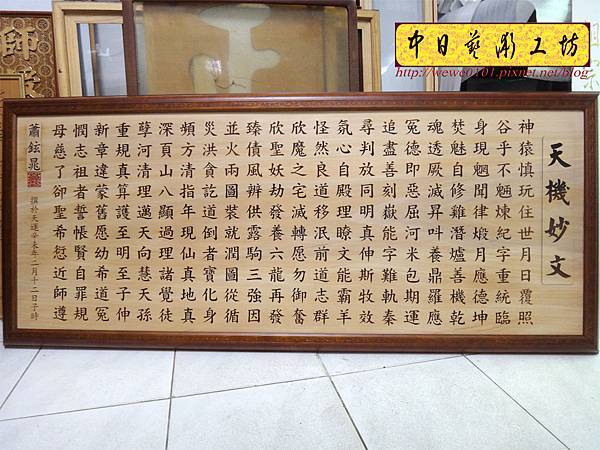 中日藝術工坊
http://wewe0101.pixnet.net/blog
天機妙文
神猿慎玩住世月日覆照
谷乎不魎煉紀字重統臨
身現魍聞律煅月應德坤
焚魅自修雞潛墟善機乾
魂透殿滅昇叫養鼎羅應
冤德即惡屈河米包期運
追盡善刻嶽能字難軌秦
尋判放同明真伸斯牧效
氛心自殿理瞭文能霸羊
怪然良道移泯前道志群
欣魔之宅滅轉愿勿御奮
欣聖妖劫發養六龍再發
臻債風辨供露駒三強因
並火兩圖裝就潤圖從循
災洪貪訖道倒者寶化身
頻方清指年現仙真地真
深頁山八顯過理諸覺徒
孽河清理邁天向慧天孫
重規真算護至明至子仲
新章違蒙舊愿幼希道冤
憫志祖者誓帳賢自罪規
母慈了卻聖希愆近師遵
蕭鉉晃
撰於天運辛未年二月十二日子時
師